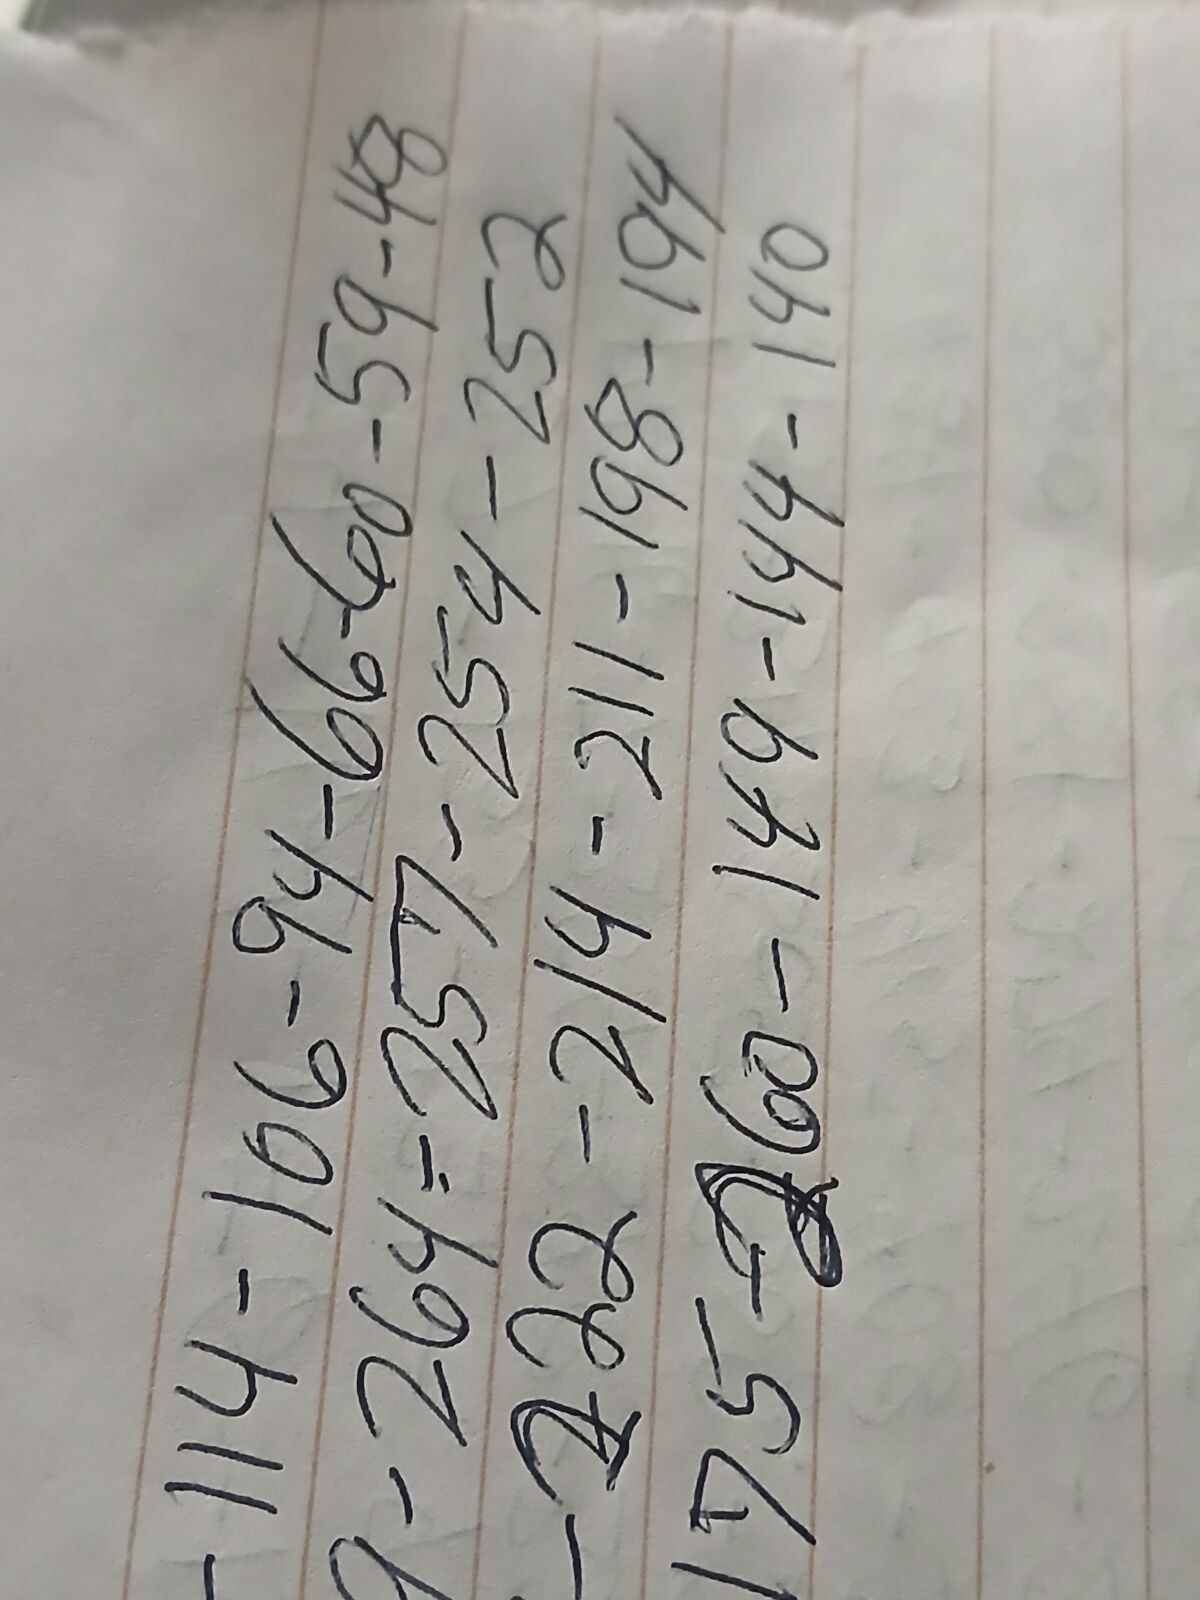 -114-106-94-66-60-59-48
9-264=257-254-252
-222-214-211-198-194
175-260-149-144-140